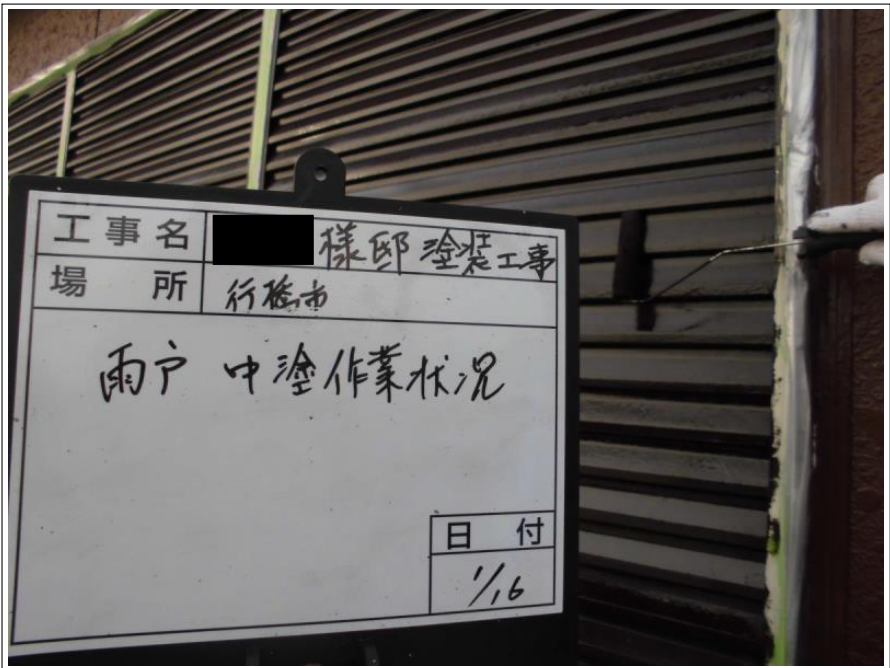 工事名 様邸 塗装工事
場所 行橋市
雨戸 中塗作業状況
日付
1/16